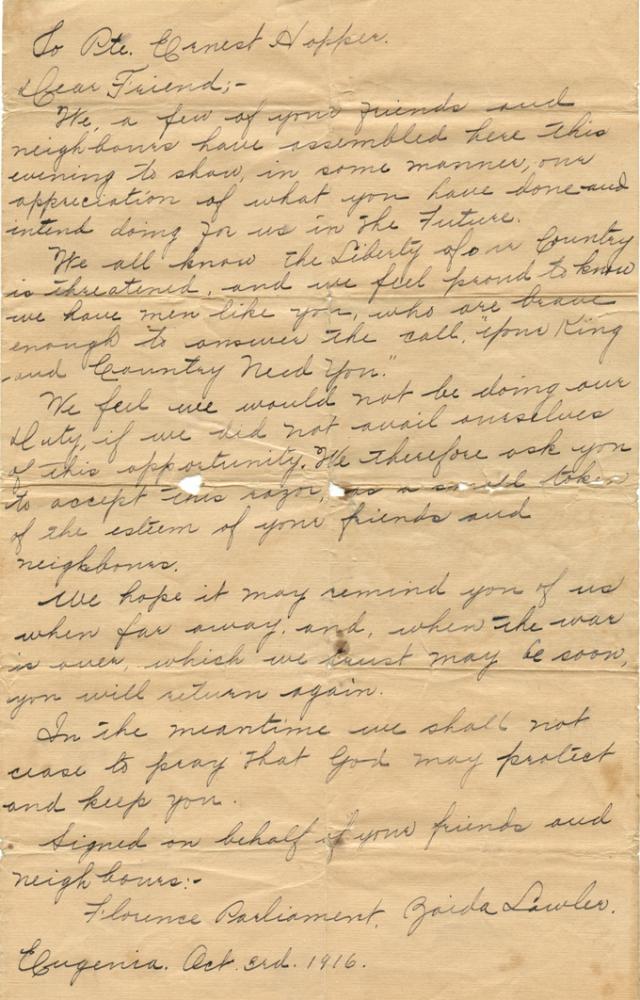 To Pte. Ernest Hopper.
Dear Friend;-
We, a few of your friends and
neighbours have assembled here this
evening to show, in some manner, our
appreciation of what you have done and
intend doing for us in the Future.
We all know the Liberty of our Country
is threatened, and we feel proud to know
we have men like you, who are brave
enough to answer the call, "Your King
and Country Need You."
We feel we would not be doing our
Duty, if we did not avail ourselves
of this opportunity. We therefore ask you
to accept this razor, as a small token
of the esteem of your friends and
neighbours.
We hope it may remind you of us
when far away, and, when the war
is over, which we trust may be soon,
you will return again.
In the meantime we shall not
cease to pray that God may protect
and keep you.
Signed on behalf of your friends and
neighbours:-
Florence Parliament, Zaida Lawler.
Eugenia. Oct. 3rd. 1916.